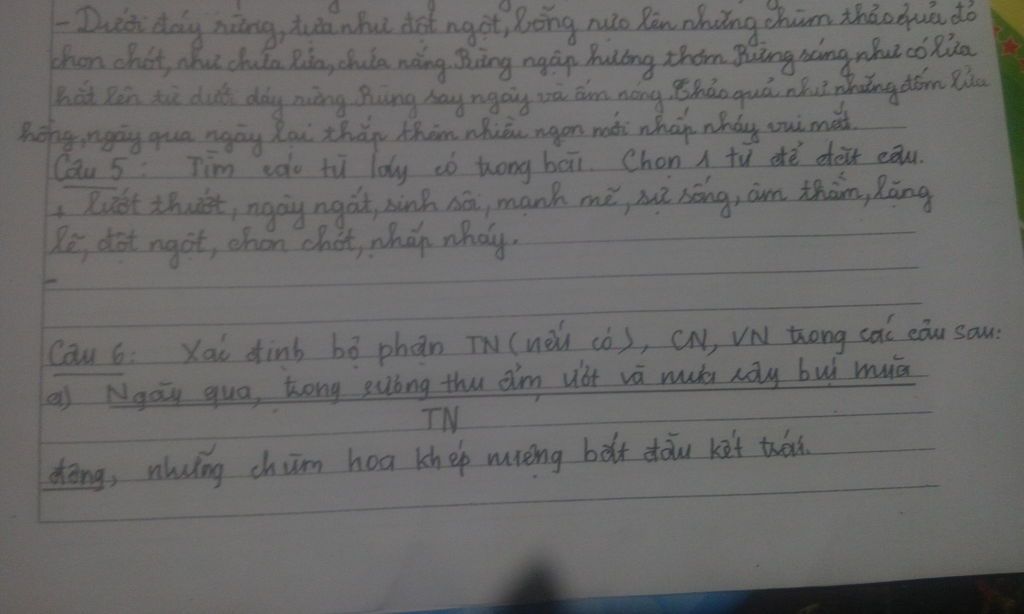 - Dưới đáy rừng, tựa như đột ngột, bỗng rực lên những chùm thảo quả đỏ
chon chót, như chứa lửa, chứa nắng. Rừng ngập hương thơm. Rừng sáng như có lửa
hắt lên từ dưới đáy rừng. Rừng say ngây và ấm nóng. Thảo quả như những đốm lửa
hồng, ngày qua ngày lại thắp thêm nhiều ngọn mới nhấp nháy vui mắt.
Câu 5 : Tìm các từ láy có trong bài. Chọn 1 từ để đặt câu.
+ lướt thướt, ngây ngất, sinh sôi, mạnh mẽ, sự sống, âm thầm, lặng
lẽ, đột ngột, chon chót, nhấp nháy.
-
Câu 6: Xác định bộ phận TN (nếu có), CN, VN trong các câu sau:
a) Ngày qua, trong sương thu ẩm ướt và mưa rây bụi mùa
TN
đông, những chùm hoa khép miệng bắt đầu kết trái.